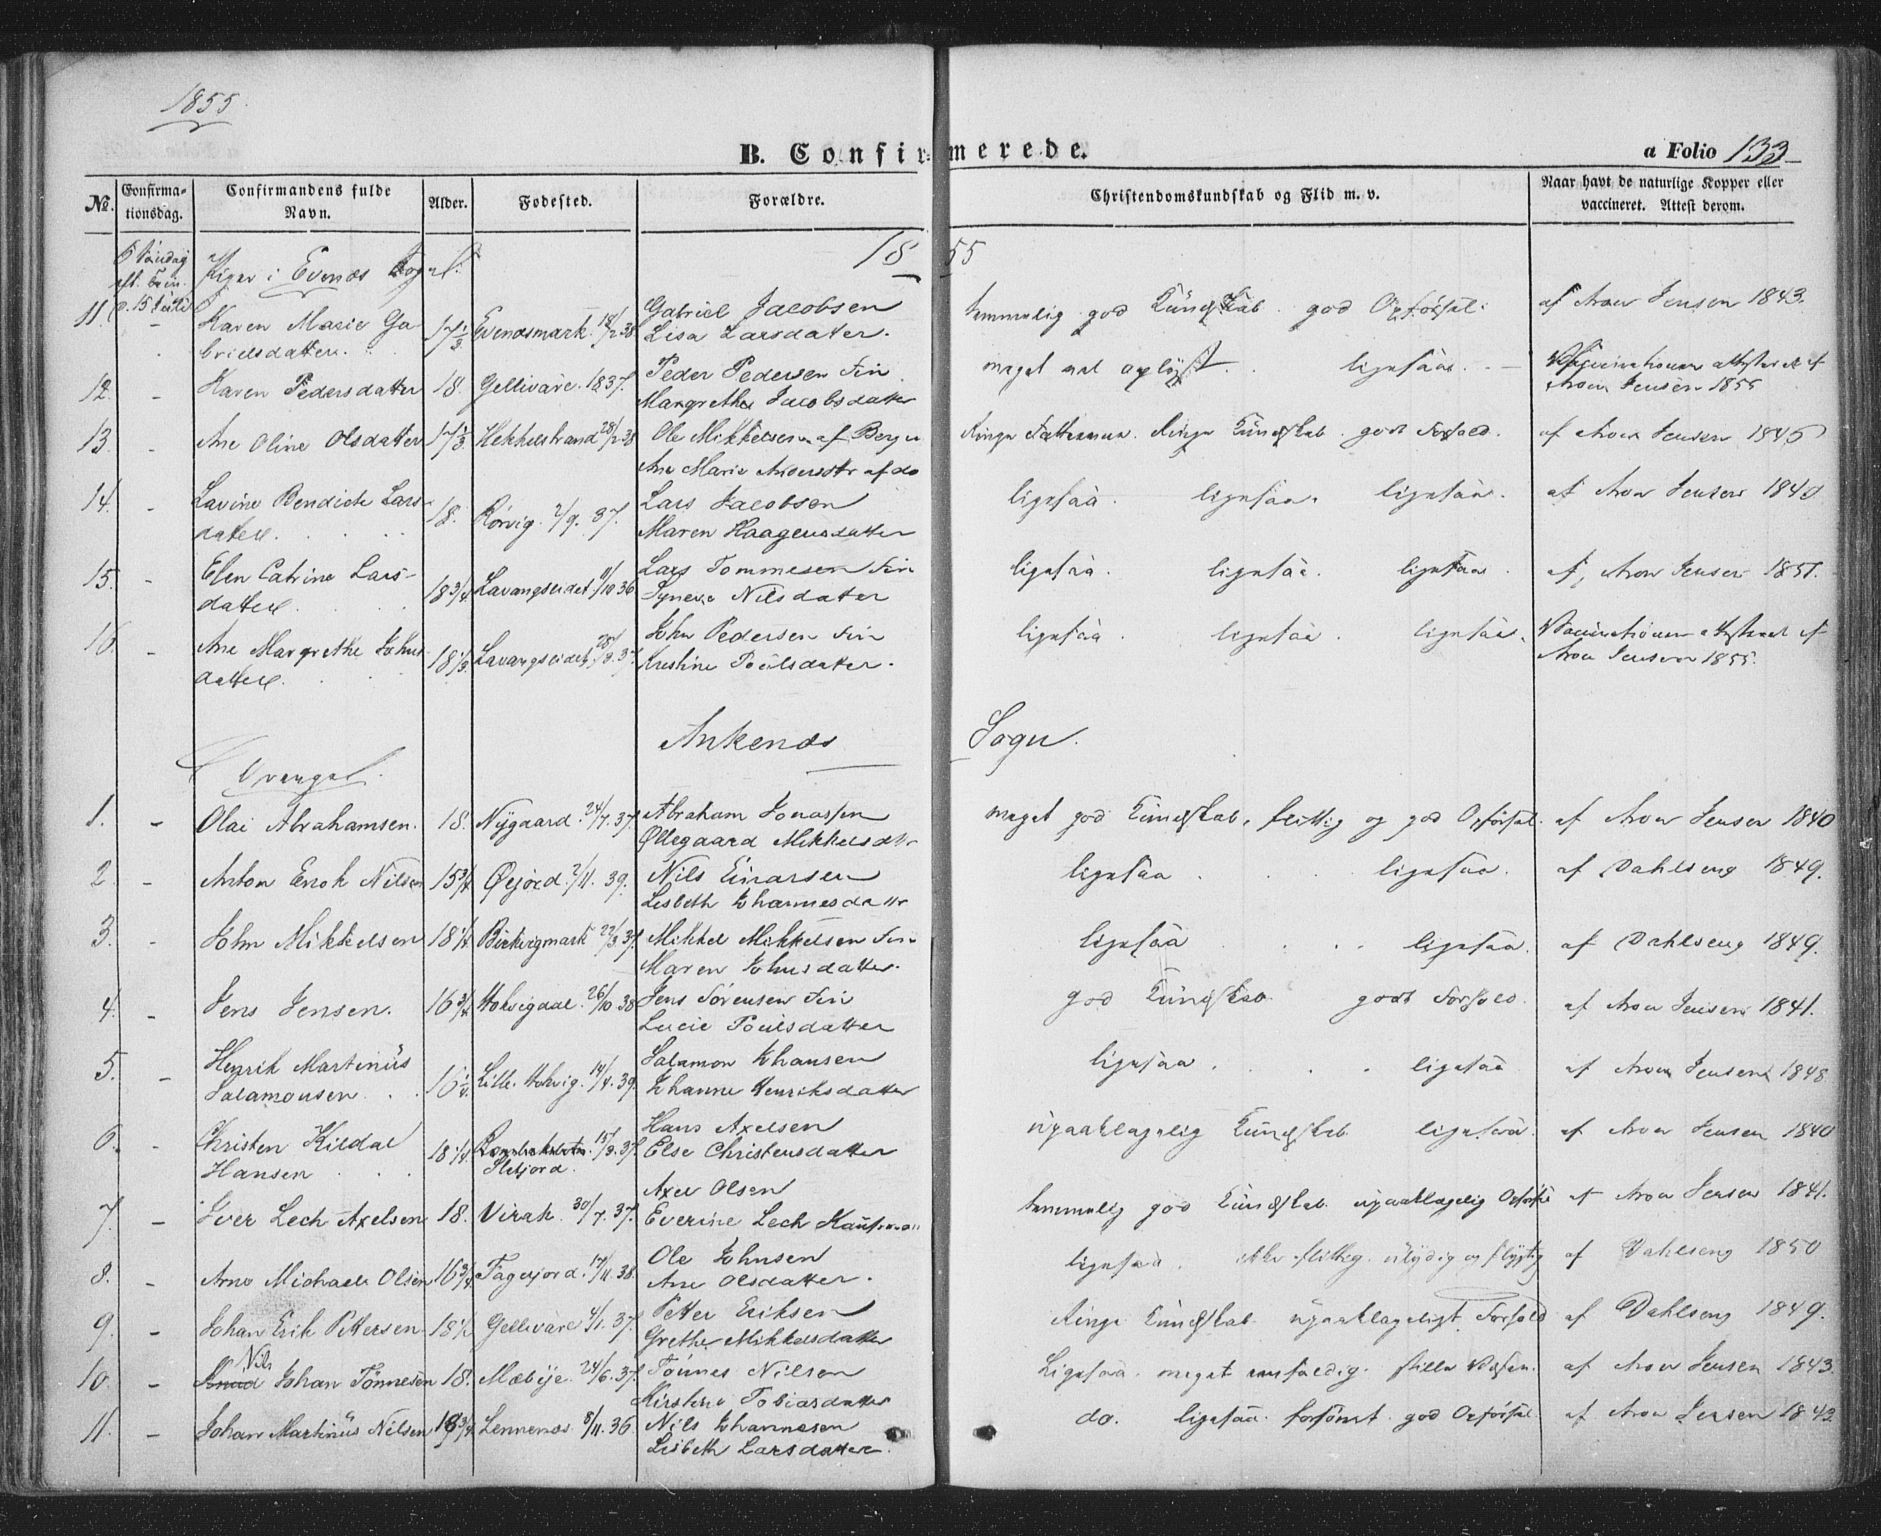 1855.
B. Confirmerede.
a Folio 133
№.
Confirmationsdag.
Confirmandens fulde Navn.
Alder.
Fødested.
Forældre.
Christendomskundskab og Flid m. v.
Naar havt de naturlige Kopper eller vaccineret. Attest derom.
1855
6 Søndag eft. Trin. d. 15 Juli
Piger i Evenæs Sogn.
11. - Karen Marie Gabrielsdatter. 17 1/3 Evenæsmark. 18/2 38 Gabriel Jacobsen Lisa Larsdatter. temmelig god Kundskab. god Opførsel. af Aron Jensen 1843.
12. - Karen Pedersdatter 18. Gellivare. 1837. Peder Pedersen Fin Margrethe Jacobsdatter meget vel oplyst. ligesaa. Vaccinationen attesteret af Aron Jensen 1855
13. - Ane Oline Olsdatter 17 1/3. Hekkelstrand 28/2 38 Ole Mikkelsen af Bergen Ane Marie Andersdtr af do Ringe Fatteevne. Ringe Kundskab. godt Forhold. af Aron Jensen 1845
14. - Lavine Bendicte Larsdatter. 18. Rørvig. 2/9. 37. Lars Jacobsen Maren Haagensdatter ligesaa. ligesaa. ligesaa. af Aron Jensen 1840
15. - Elen Catrine Larsdatter. 18 3/4 Lavangseidet 11/10 36 Lars Tommesen Fin Syneve Nilsdatter ligesaa. ligesaa. ligesaa. af Aron Jensen 1851.
16. - Ane Margrethe Johnsdatter. 18 1/3 Lavangseidet 28/3. 37. John Pedersen Fin Kirstine Poulsdatter. ligesaa. ligesaa. ligesaa. Vaccinationen attesteret af Aron Jensen 1855.
Ankenæs Sogn.
Drenge.
1. - Olai Abrahamsen. 18. Nygaard. 24/7. 37. Abraham Jonassen Øllegaard Mikkelsdtr meget god Kundskab, flittig og god Opførsel. af Aron Jensen 1840
2. - Anton Enok Nilsen 15 3/4 Øyjord. 2/11. 39. Nils Einarsen Lisbeth Johannesdattr ligesaa. ligesaa. af Dahlseng 1849.
3. - John Mikkelsen 18 1/4 Beisvigmark 22/3 37. Mikkel Mikkelsen Fin Maren Johnsdatter. ligesaa. ligesaa. af Dahlseng 1849.
4. - Jens Jensen. 16 3/4 Hokvigdal. 26/10 38 Jens Sørensen Fin Lucie Poulsdatter god Kundskab. godt Forhold. af Aron Jensen 1841.
5. - Henrik Martinus Salamonsen. 16 1/4. Lille Hokvig. 14/4. 39. Salamon Johansen Johanne Henriksdatter ligesaa. ligesaa. af Aron Jensen 1848
6. - Christen Kildal Hansen 18 1/4 Slekjord. 15/3. 37. Hans Axelsen Else Christensdatter upaaklagelig Kundskab. ligesaa. af Aron Jensen 1840
7. - Iver Lech Axelsen 18. Virak. 30/7. 37. Axel Olsen Everine Lech temmelig god Kundskab. upaaklagelig Opførsel af Aron Jensen 1841.
8. - Arne Michael Olsen 16 3/4 Fagerjord. 17/11. 38. Ole Johnsen Ane Olsdatter. ligesaa. ikke flittig. ulydig og flygtig af Dahlseng 1850
9. - Johan Erik Pettersen 18 1/2 Gellivare 4/1. 37. Petter Eriksen Grethe Mikkelsdatter Ringe Kundskab. upaaklageligt Forhold af Dahlseng 1849.
10. - Knud Nils Johan Tønnesen 18. Mæbye. 24/6. 37. Tønnes Nilsen Kirstine Tobiasdatter Ligesaa. meget eenfoldig. stille Væsen. af Aron Jensen 1843
11. - Johan Martinus Nilsen 18 3/4 Lennenæs. 8/11. 36. Nils Johannesen Lisbeth Larsdatter. do. ligesaa. forsømt. god Opførsel. af Aron Jensen 1843